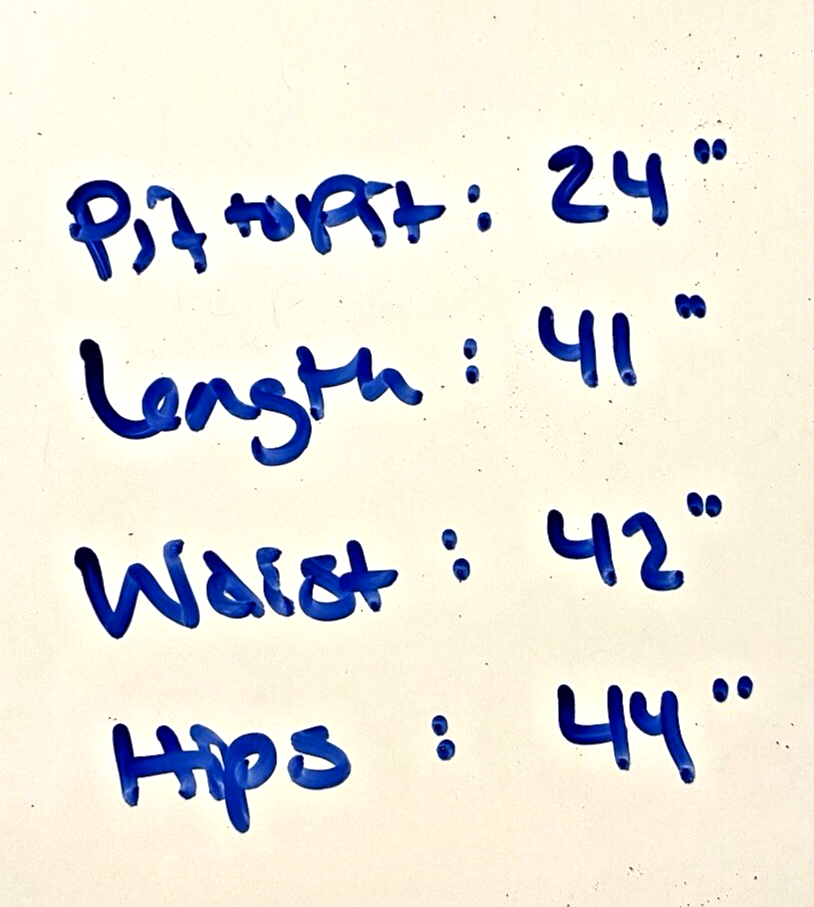 Pit to Pit : 24"
Length : 41"
Waist : 42"
Hips : 44"